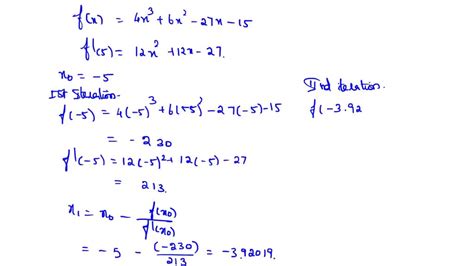 f(x) = 4x³ + 6x² - 27x - 15
f'(5) = 12x² + 12x - 27.
x0 = -5
Ist Iteration.
f(-5) = 4(-5)³ + 6(-5)² - 27(-5) - 15
= -230
f'(-5) = 12(-5)² + 12(-5) - 27
= 213.
x1 = x0 - f(x0)/f'(x0)
= -5 - (-230)/213 = -3.92019.
IInd iteration.
f(-3.92